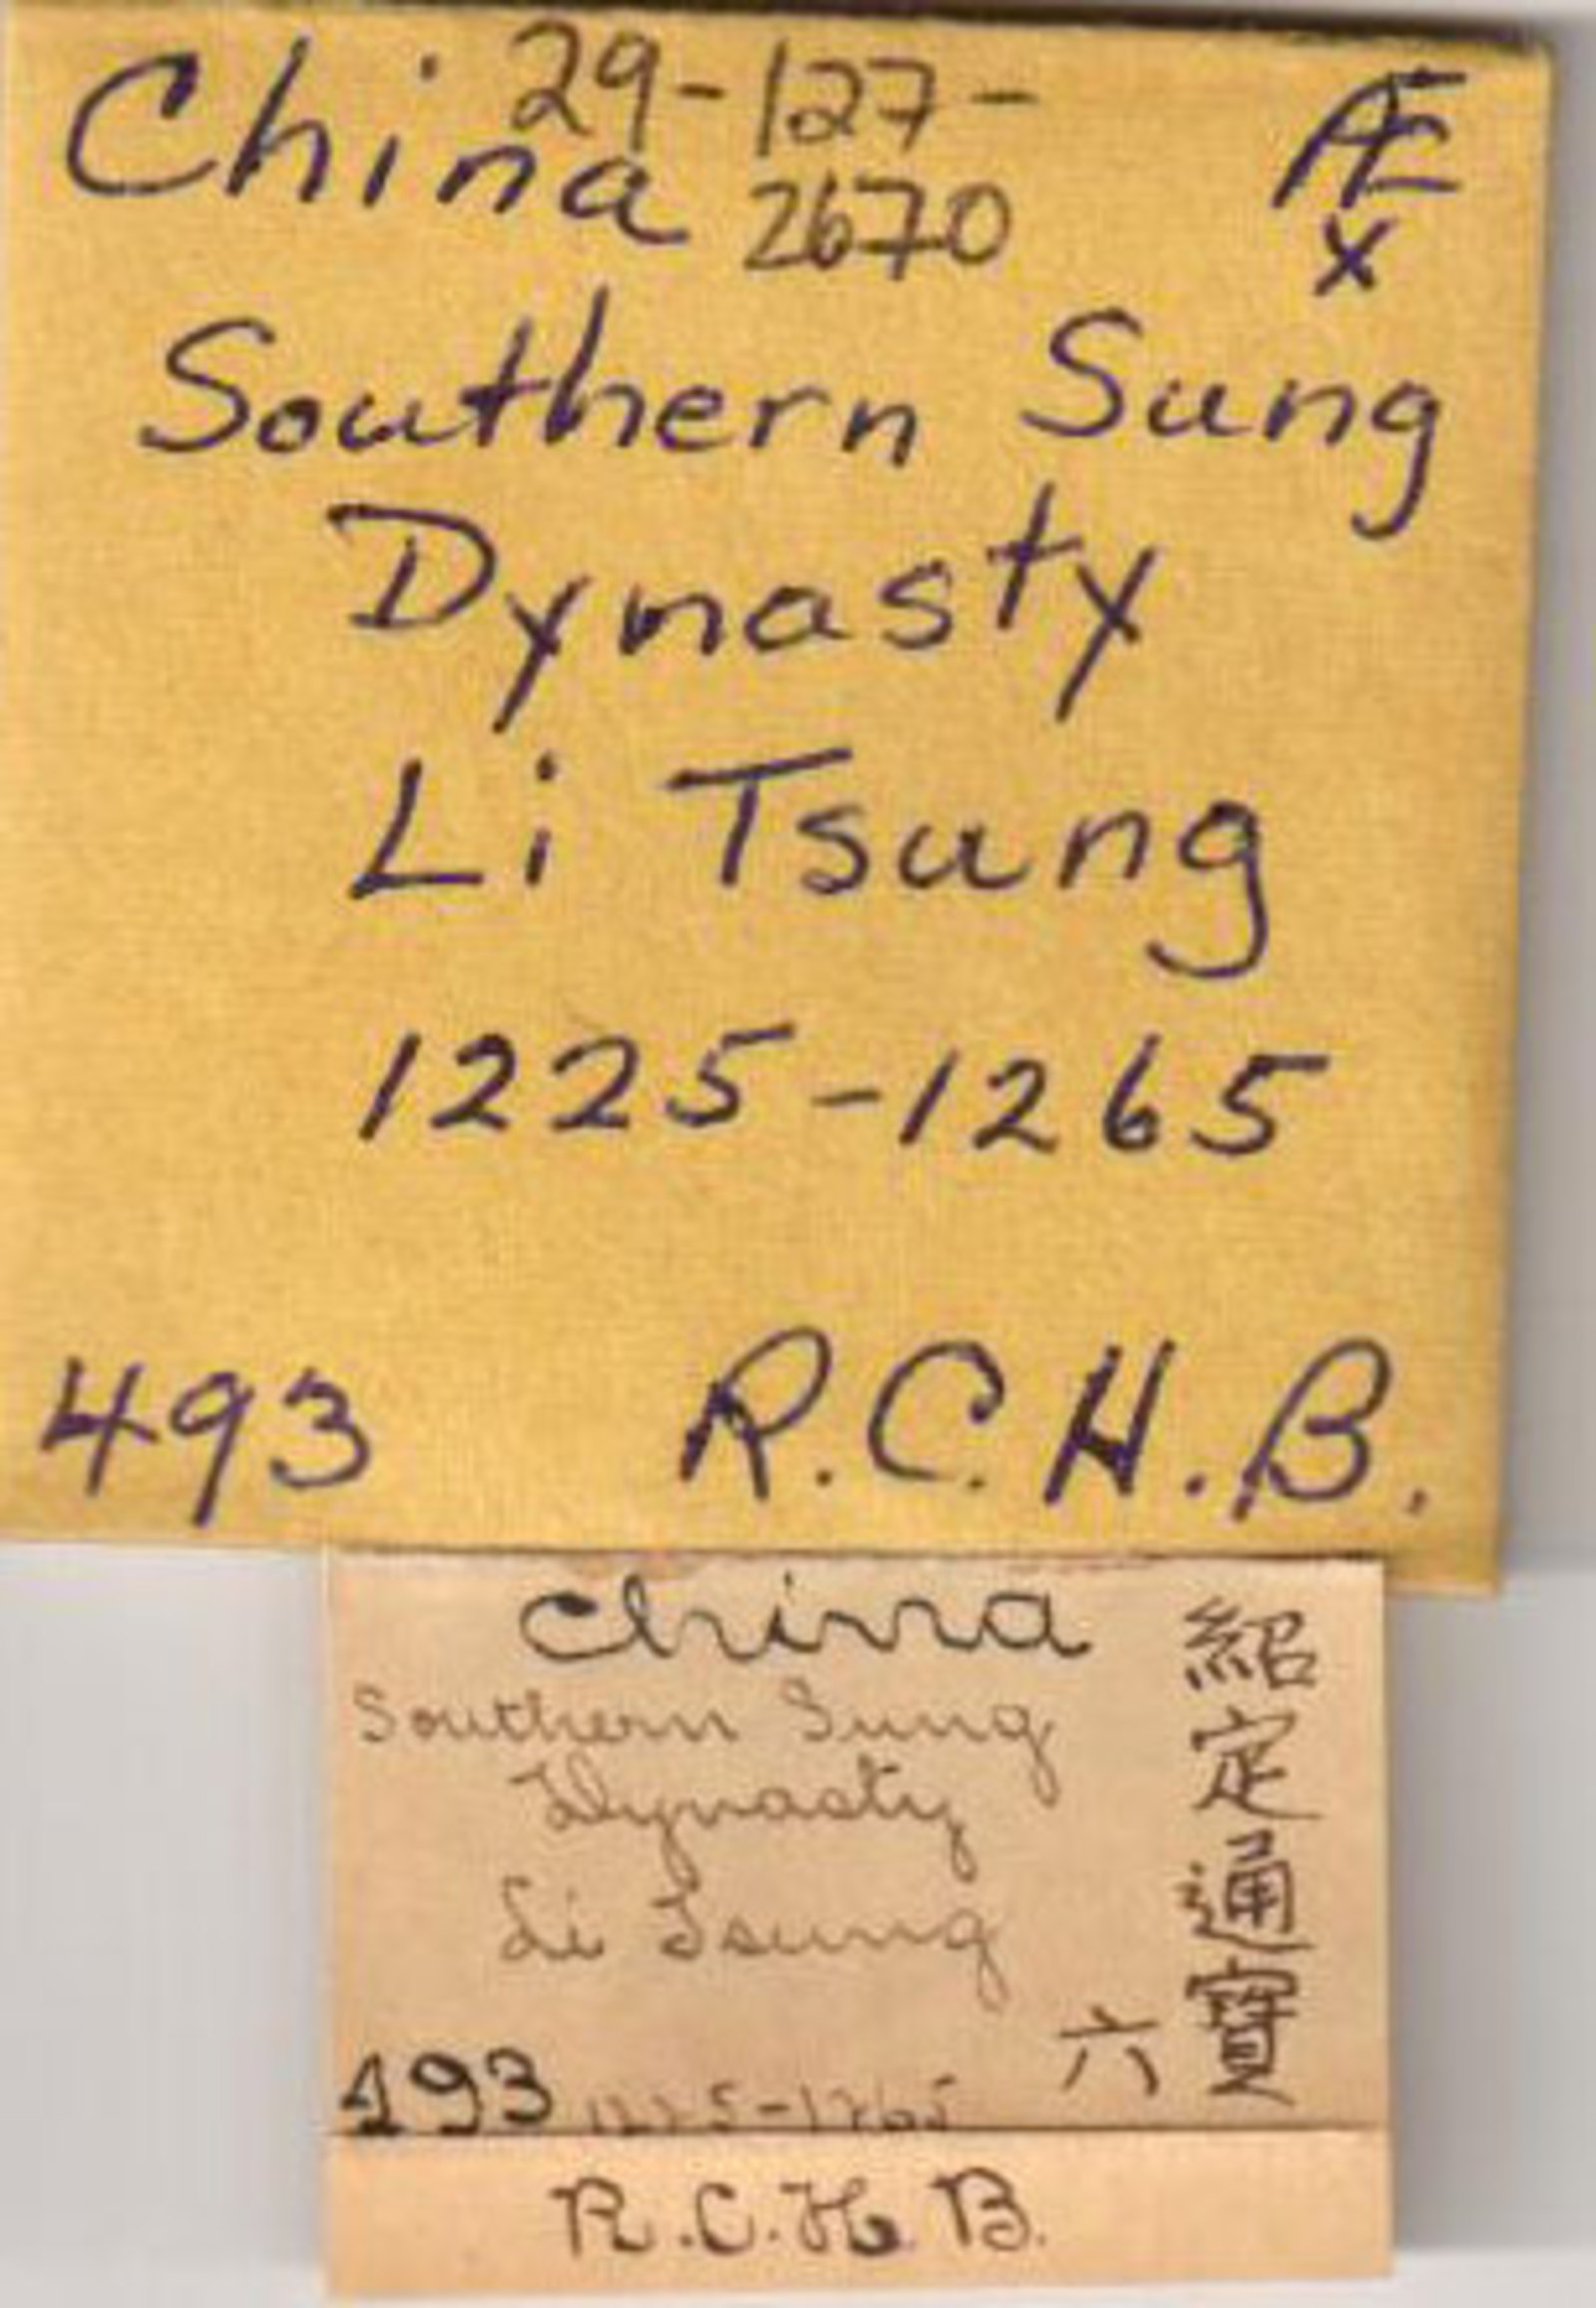 29-127-
China
2670
Æ
x
Southern Sung
Dynasty
Li Tsung
1225-1265
493 R.C.H.B.
China
Southern Sung
Dynasty
Li Tsung
493 1225-1265
紹定通寶
六
R.C.H.B.